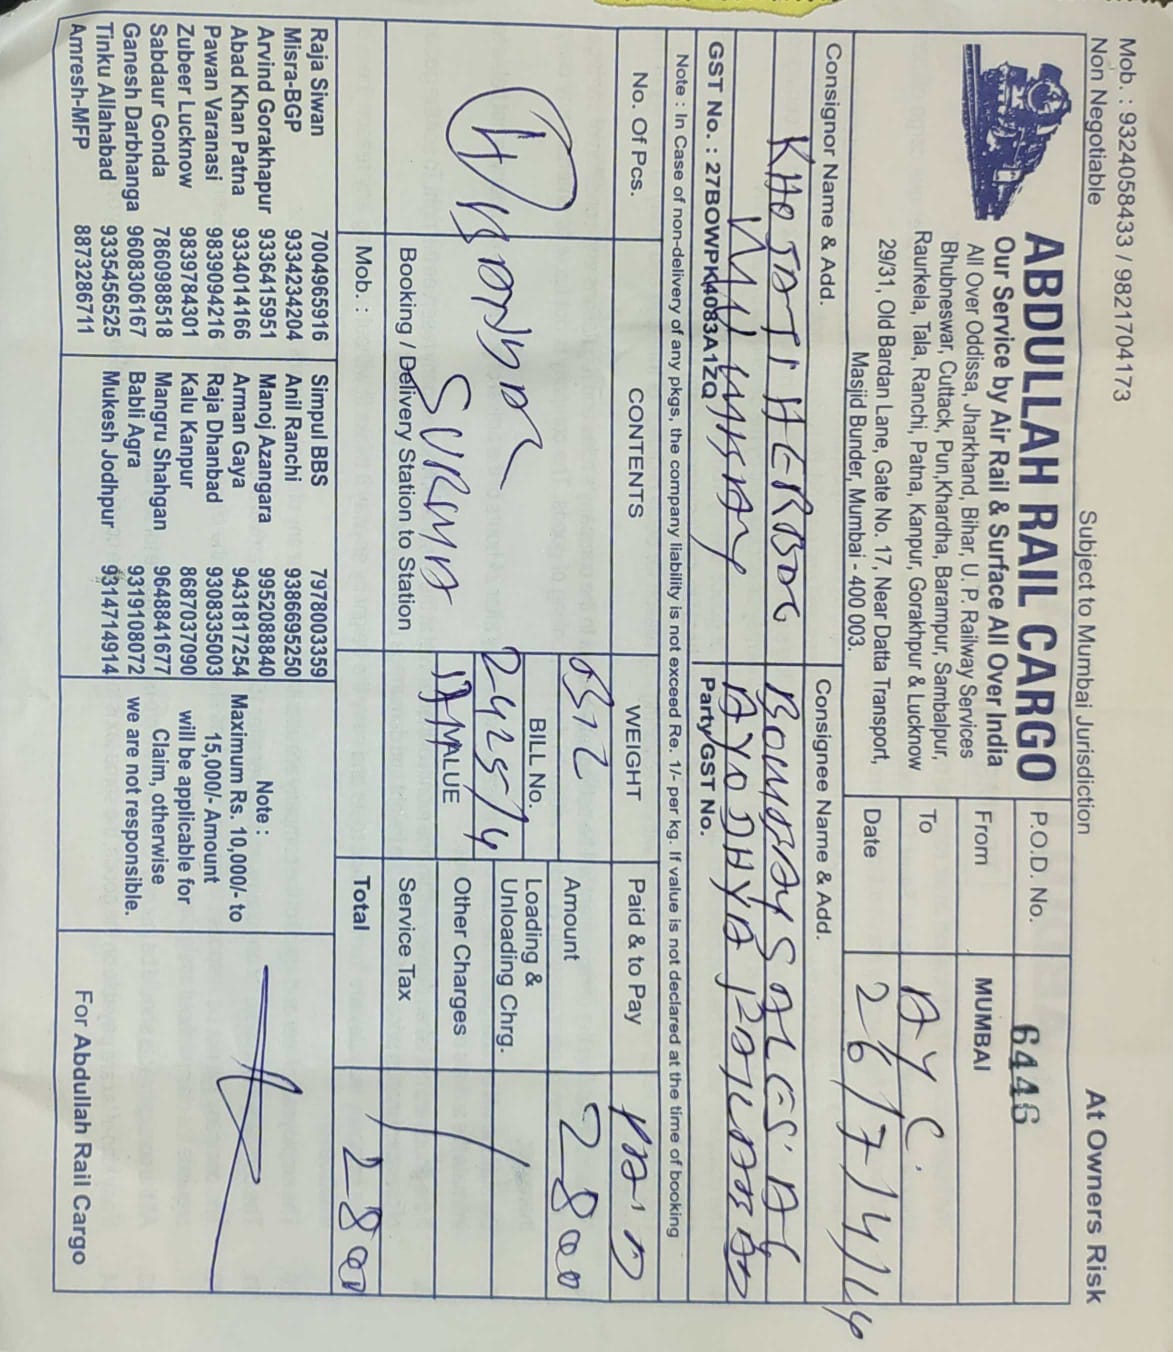 Mob. : 9324058433 / 9821704173
Non Negotiable
Subject to Mumbai Jurisdiction
At Owners Risk
ABDULLAH RAIL CARGO
Our Service by Air Rail & Surface All Over India
All Over Oddissa, Jharkhand, Bihar, U. P. Railway Services
Bhubneswar, Cuttack, Pun,Khardha, Barampur, Sambalpur,
Raurkela, Tala, Ranchi, Patna, Kanpur, Gorakhpur & Lucknow
29/31, Old Bardan Lane, Gate No. 17, Near Datta Transport,
Masjid Bunder, Mumbai - 400 003.
P.O.D. No. 6446
From MUMBAI
To AYC.
Date 26/7/24
Consignor Name & Add.
KHOJATI HERBAL
MUMBAY
GST No. : 27BOWPK4083A1ZQ
Consignee Name & Add.
BOMBAY SALES AG
AYODHYA
Party GST No.
Note : In Case of non-delivery of any pkgs, the company liability is not exceed Re. 1/- per kg. If value is not declared at the time of booking
No. Of Pcs.
CONTENTS
WEIGHT
Paid & to Pay PAID
SURMA
BILL No.
VALUE
Amount 2800
Loading &
Unloading Chrg.
Other Charges
Service Tax
Total 2800
Booking / Delivery Station to Station
Mob. :
Raja Siwan 7004965916
Misra-BGP 9334234204
Arvind Gorakhapur 9336415951
Abad Khan Patna 9334014166
Pawan Varanasi 9839094216
Zubeer Lucknow 9839784301
Sabdaur Gonda 7860988518
Ganesh Darbhanga 9608306167
Tinku Allahabad 9335456525
Amresh-MFP 8873286711
Simpul BBS 7978003359
Anil Ranchi 9386695250
Manoj Azangara 9952088840
Arman Gaya 9431817254
Raja Dhanbad 9308335003
Kalu Kanpur 8687037090
Mangru Shahgan 9648841677
Babli Agra 9319108072
Mukesh Jodhpur 9314714914
Note :
Maximum Rs. 10,000/- to
15,000/- Amount
will be applicable for
Claim, otherwise
we are not responsible.
For Abdullah Rail Cargo